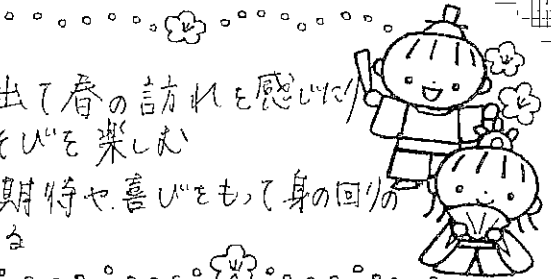 出て春の訪れを感じたり
そびを楽しむ
期待や喜びをもって身の回りの
る